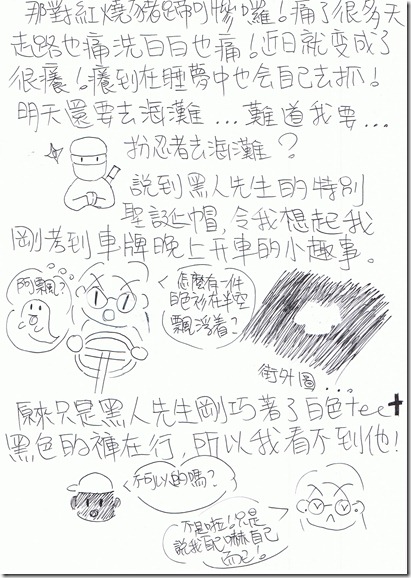 那對紅燒豬蹄可慘囉!痛了很多天
走路也痛洗白白也痛!近日就变成了
很癢!癢到在睡夢中也会自己去抓!
明天還要去海灘...難道我要...
扮忍者去海灘?
說到黑人先生的特別
聖誕帽,令我想起我
剛考到車牌晚上开車的小趣事。
阿飄?
怎麼有一件
白色衫在半空
飄浮着?
街外圖...
原來只是黑人先生剛巧著了白色tee+
黑色的褲在行,所以我看不到他!
不可以的嗎?
不是啦!只是
說我自己嚇自己
而已!